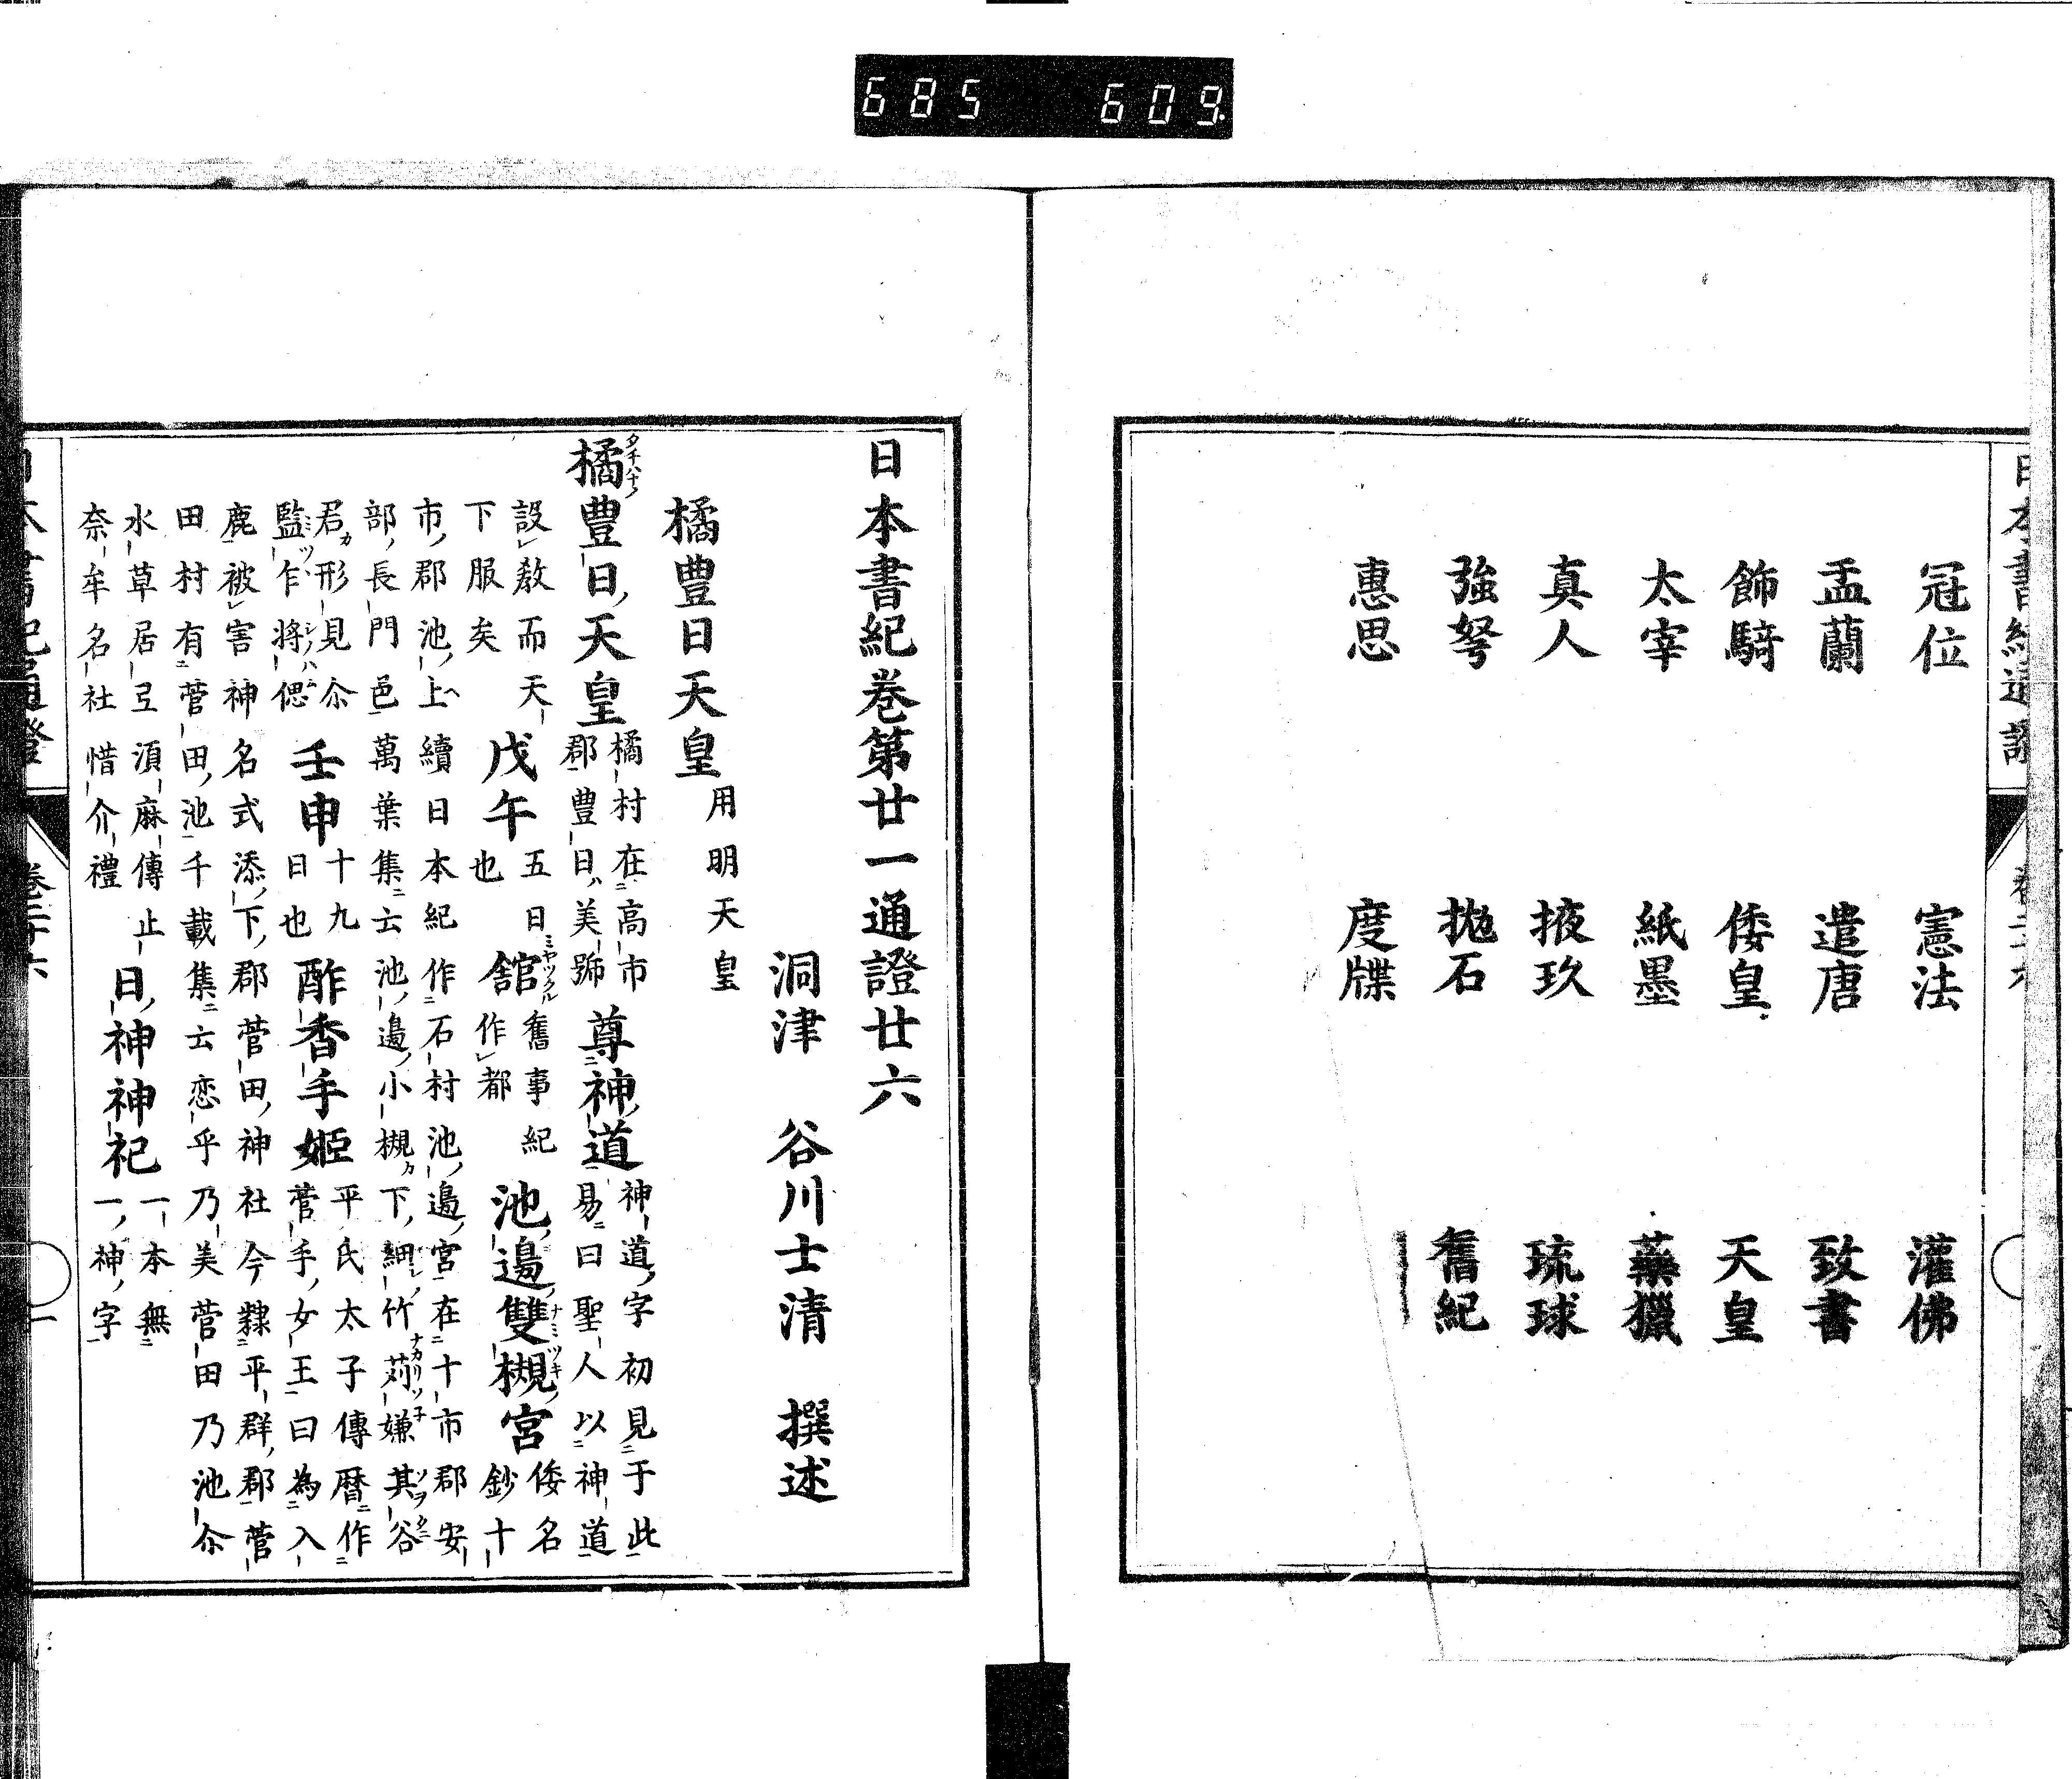 日本書紀通證
卷二十六
冠位 憲法 灌佛
盂蘭 遣唐 致書
飾騎 倭皇 天皇
太宰 紙墨 藥獵
真人 掖玖 琉球
強弩 拋石 舊紀
惠思 度牒
日本書紀卷第廿一通證廿六
洞津 谷川士清 撰述
橘豊日天皇 用明天皇
橘豊日天皇 橘村在高市 郡豊日美號 尊神道 神道字初見于此 易曰聖人以神道
設敎而天 下服矣 戊午 五日 也 舘 舊事紀 作都 池邊雙槻宮 倭名 鈔十
市郡池上續日本紀作石村池邊宮在十市郡安
部長門邑萬葉集云池邊小槻下細竹苅嫌其谷
君形見尒 監乍將偲 壬申 十九 日也 酢香手姬 平氏太子傳曆作 菅手女王曰為入
鹿被害神名式添下郡菅田神社今隸平群郡菅
田村有菅田池千載集云恋乎乃美菅田乃池尒
水草居弖湏麻傳止 奈牟名社惜介禮 日神神祀 一本無 一神字
日本書紀通證
卷二十六
一
685 609